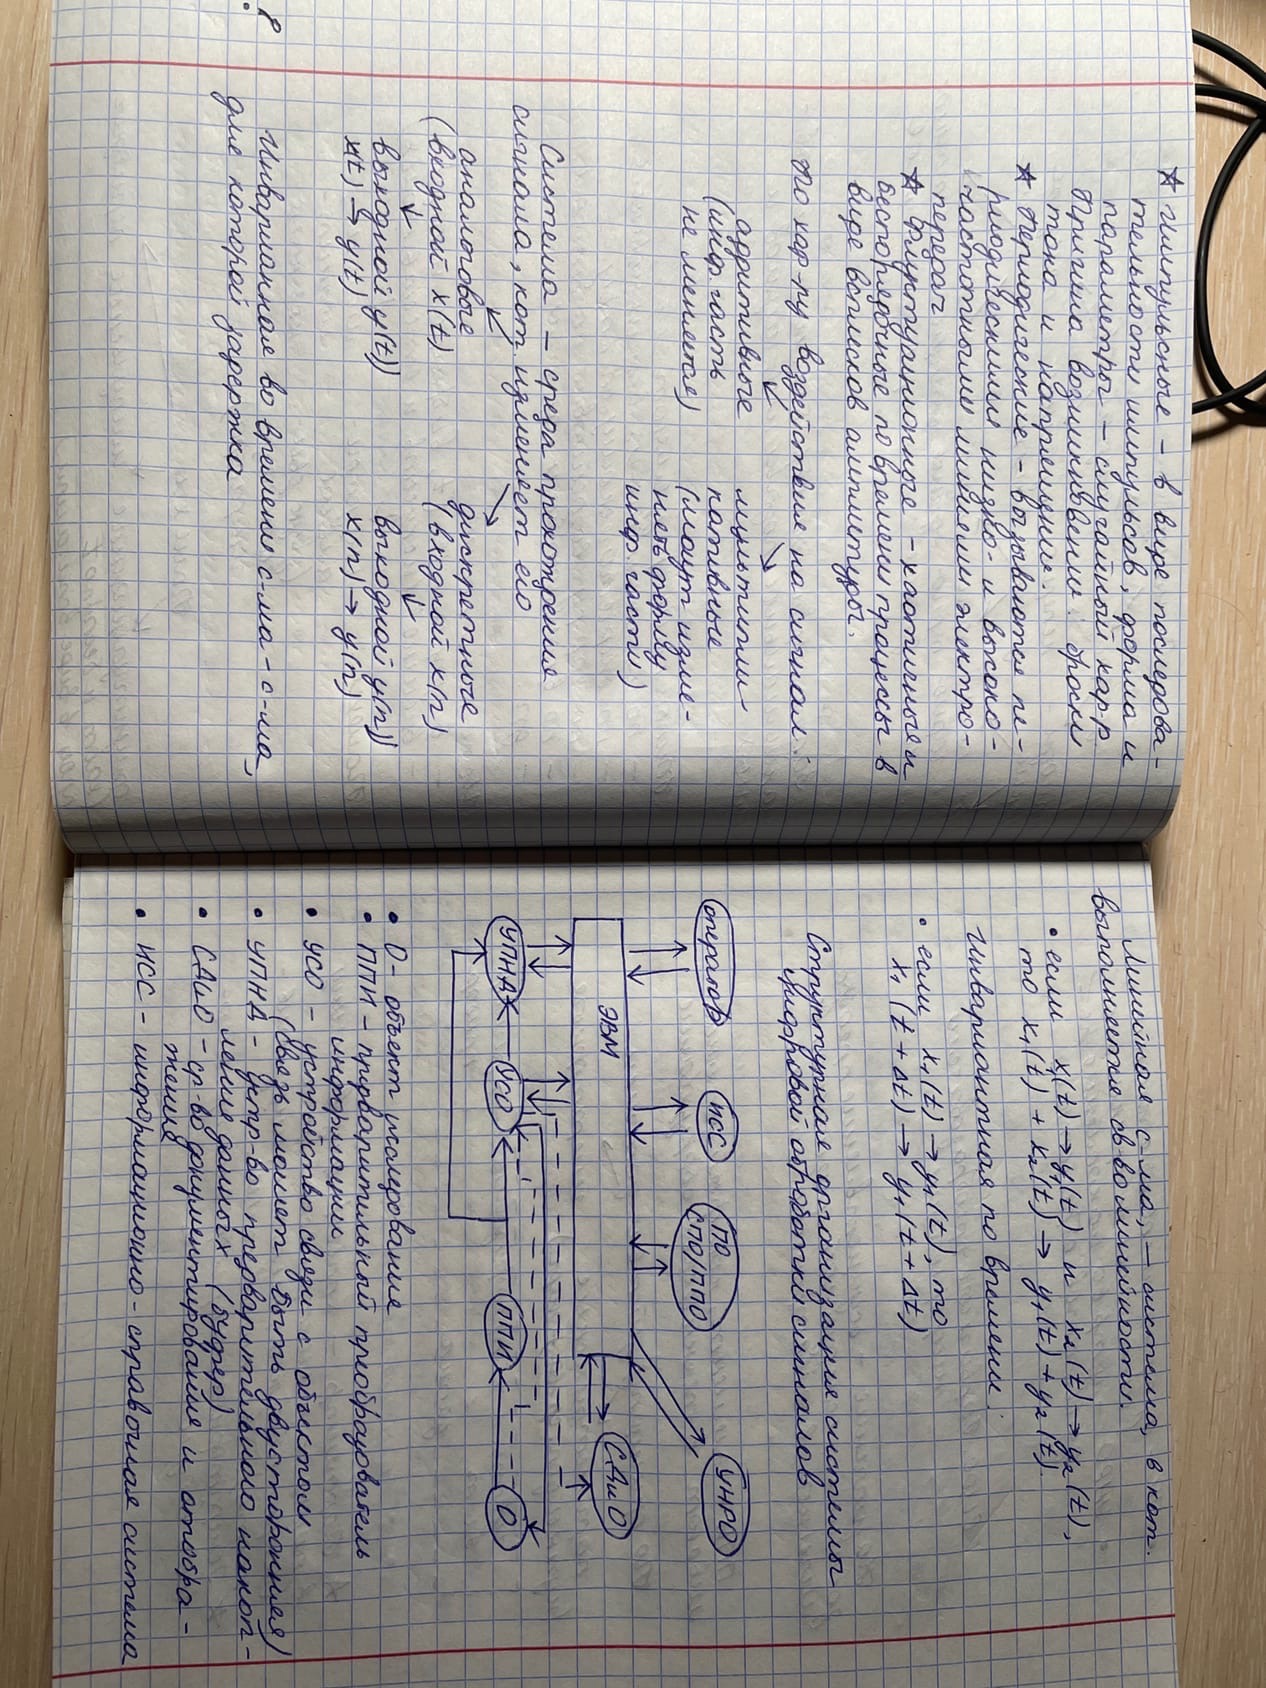 ☆ Импульсные – в виде последова-
тельности импульсов, форма и
параметры – случайный хар-р.
Причина возникновения: броски
тока и напряжения.
☆ Периодические – вызываются пе-
риодическими низко- и высоко-
частотными линиями электро-
передач
☆ Флуктуационные – хаотичные и
беспорядочные по времени процессы в
виде всплесков амплитуды.
По хар-ру воздействия на сигнал:
аддитивные
(инф. часть
не меняется)
мультипли-
кативные
(могут изме-
нять форму
инф. части)
Система – среда прохождения
сигнала, кот. изменяет его
аналоговые
(входной x(t)
выходной y(t))
x(t) → y(t)
дискретные
(входной x(n)
выходной y(n))
x(n) → y(n)
? Инварианная во времени с-ма – с-ма,
для которой задержка
Линейная с-ма, – система, в кот.
выполняется св-во линейности.
• если x₁(t) → y₁(t) и x₂(t) → y₂(t),
то x₁(t) + x₂(t) → y₁(t) + y₂(t).
Инвариантная по времени:
• если x₁(t) → y₁(t), то
x₁(t + Δt) → y₁(t + Δt)
Структурная организация системы
цифровой обработки сигналов
оператор
ИСС
ПО
СПО/ППО
УНРО
ЭВМ
СДиО
УПНД
УСО
ППИ
О
• О – объект исследование
• ППИ – предварительный преобразователь
информации
• УСО – устройство связи с объектом
(связь может быть двусторонняя)
• УПНД – устр-во предварительного накоп-
ления данных (буфер)
• СДиО – ср-во документирование и отобра-
жения
• ИСС – информационно-справочная система